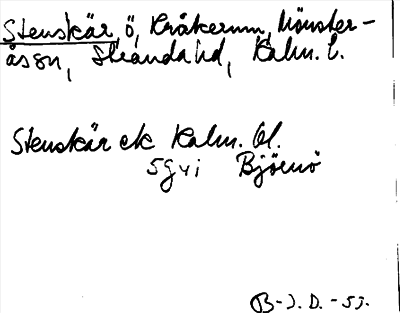 Stenskär, ö, Kråkerum, Mönster-
ås sn, Stranda hd, Kalm. l.
Stenskär ek Kalm. bl.
5g vi Björnö
B-J. D. -53.